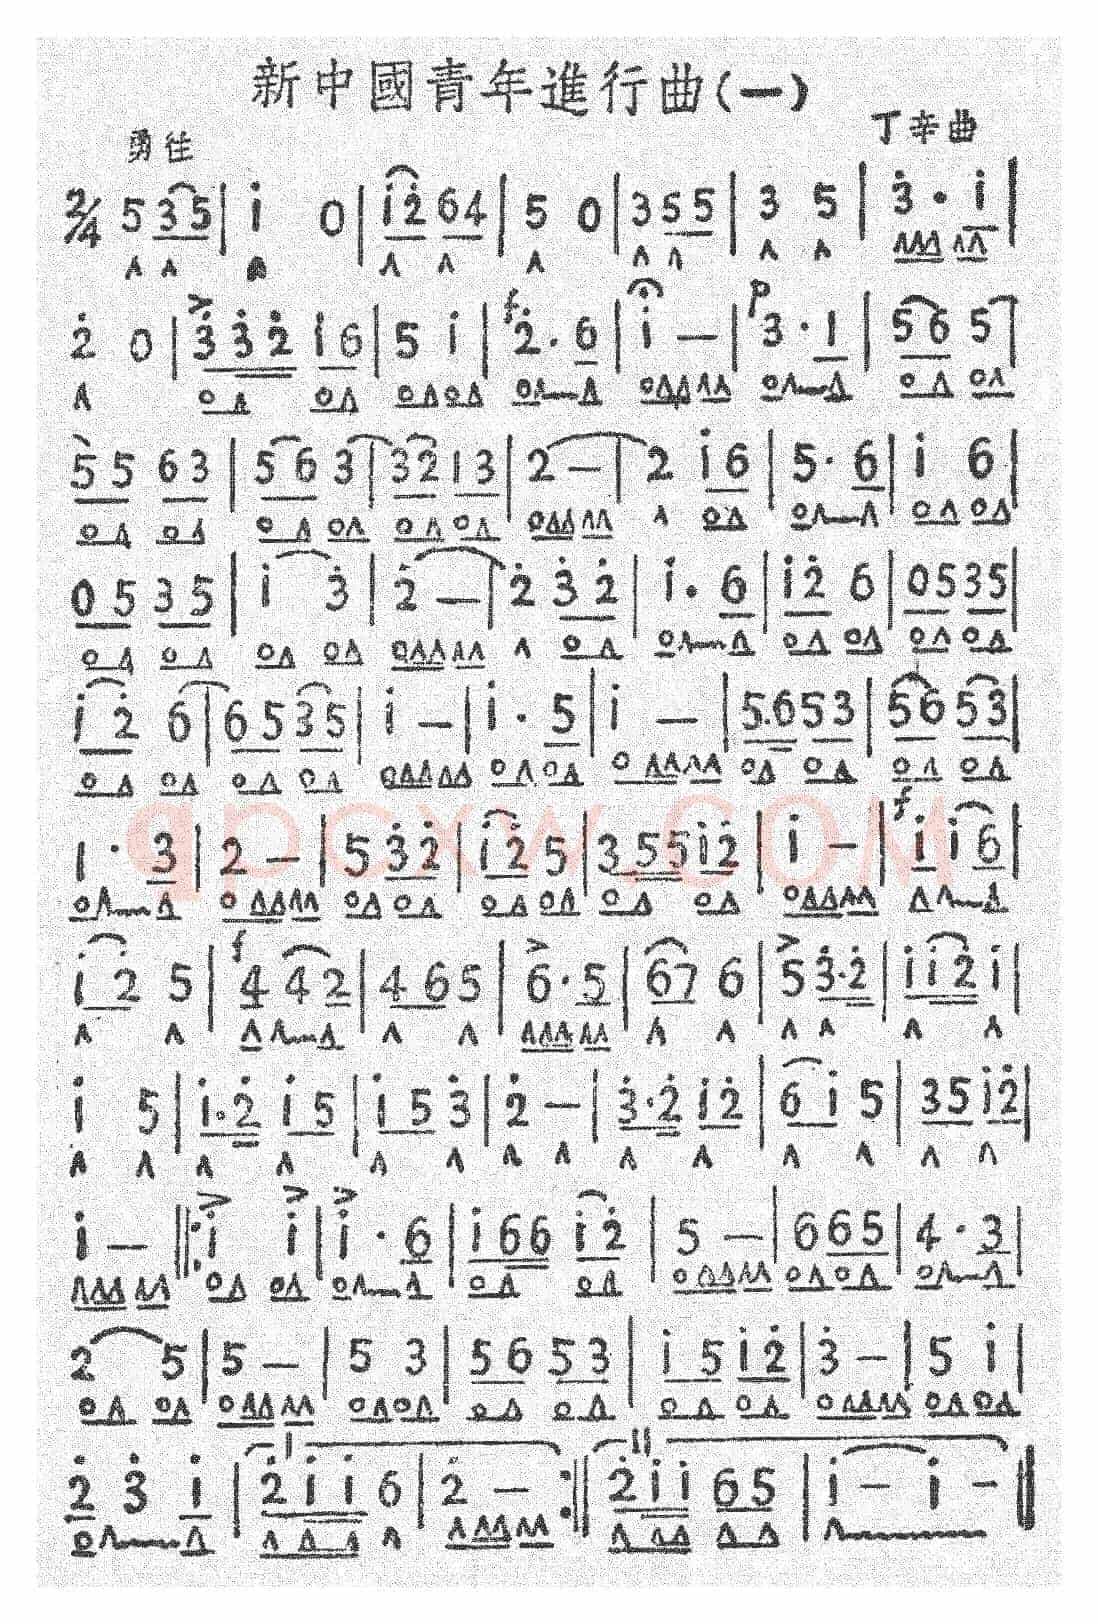 新中國青年進行曲(一)
勇往
丁辛曲
2/4 5 3 5 | i 0 | i 2 6 4 | 5 0 | 3 5 5 | 3 5 | 3 · i |
2 0 | 3 3 2 1 6 | 5 i | f 2 · 6 | i — | p 3 · 1 | 5 6 5 |
5 5 6 3 | 5 6 3 | 3 2 1 3 | 2 — | 2 i 6 | 5 · 6 | i 6 |
0 5 3 5 | i 3 | 2 — | 2 3 2 | i · 6 | i 2 6 | 0 5 3 5 |
i 2 6 | 6 5 3 5 | i — | i · 5 | i — | 5 . 6 5 3 | 5 6 5 3 |
1 · 3 | 2 — | 5 3 2 | i 2 5 | 3 5 5 i 2 | i — | f i i 6 |
i 2 5 | f 4 4 2 | 4 6 5 | 6 · 5 | 6 7 6 | 5 3 · 2 | i i 2 i |
i 5 | i · 2 i 5 | i 5 3 | 2 — | 3 · 2 i 2 | 6 i 5 | 3 5 i 2 |
i — ‖: i i | i · 6 | i 6 6 i 2 | 5 — | 6 6 5 | 4 · 3 |
2 5 | 5 — | 5 3 | 5 6 5 3 | i 5 i 2 | 3 — | 5 i |
I II
2 3 i | 2 i i 6 | 2 — :‖ 2 i i 6 5 | i — i — ‖
qpcxw.COM